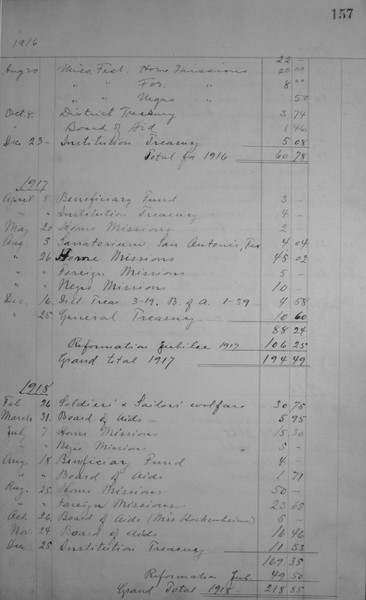 157
1916
22 -
Aug 20 Miss. Fest. Home Missions 20 00
" " For. " 8 00
" " Negro " 50
Oct. 8. District Treasury 3 74
" Board of Aid 1 46
Dec 23 - Institution Treasury 5 08
Total for 1916 60 78
1917
April 8 Beneficiary Fund 3 -
" " Institution Treasury 4 -
May 20 Home Missions 2 -
Aug 5 Sanatorium San Antonio, Tex 4 04
" 26 Home Missions 45 02
" " Foreign Missions 5 -
" " Negro Mission 10
Dec. 16 Dist Treas 3-19, B of A. 1-39 4 58
" 25 General Treasury 10 60
88 24
Reformation Jubilee 1917 106 25
Grand total 1917 194 49
1918
Feb 24 Soldier's & Sailors' welfare 30 75
March 31 Board of Aids - 5 95
July 7 Home Mission 15 30
" " Negro Mission 5 -
Aug. 18 Beneficiary Fund 4 -
" " Board of Aids 1 71
Aug. 25 Home Missions 50 -
" " Foreign Missions 23 65
Oct. 26 Board of Aids (Miss Hockenheimer) 5 -
Nov. 24 Board of Aids 16 46
Dec 25 Institution Treasury 11 53
169 35
Reformation Jub. 49 50
Grand Total 1918 218 85